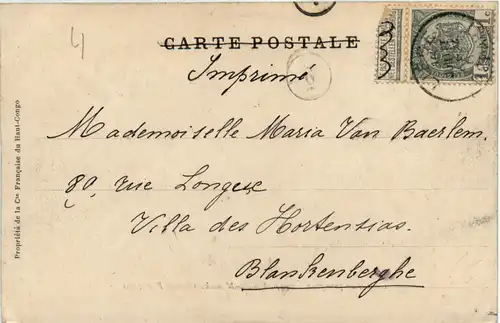 CARTE POSTALE
Imprimé
Mademoiselle Maria Van Baerlem.
80, rue Longese
Villa des Hortensias.
Blankenberghe
Propriété de la Cie Française du Haut-Congo